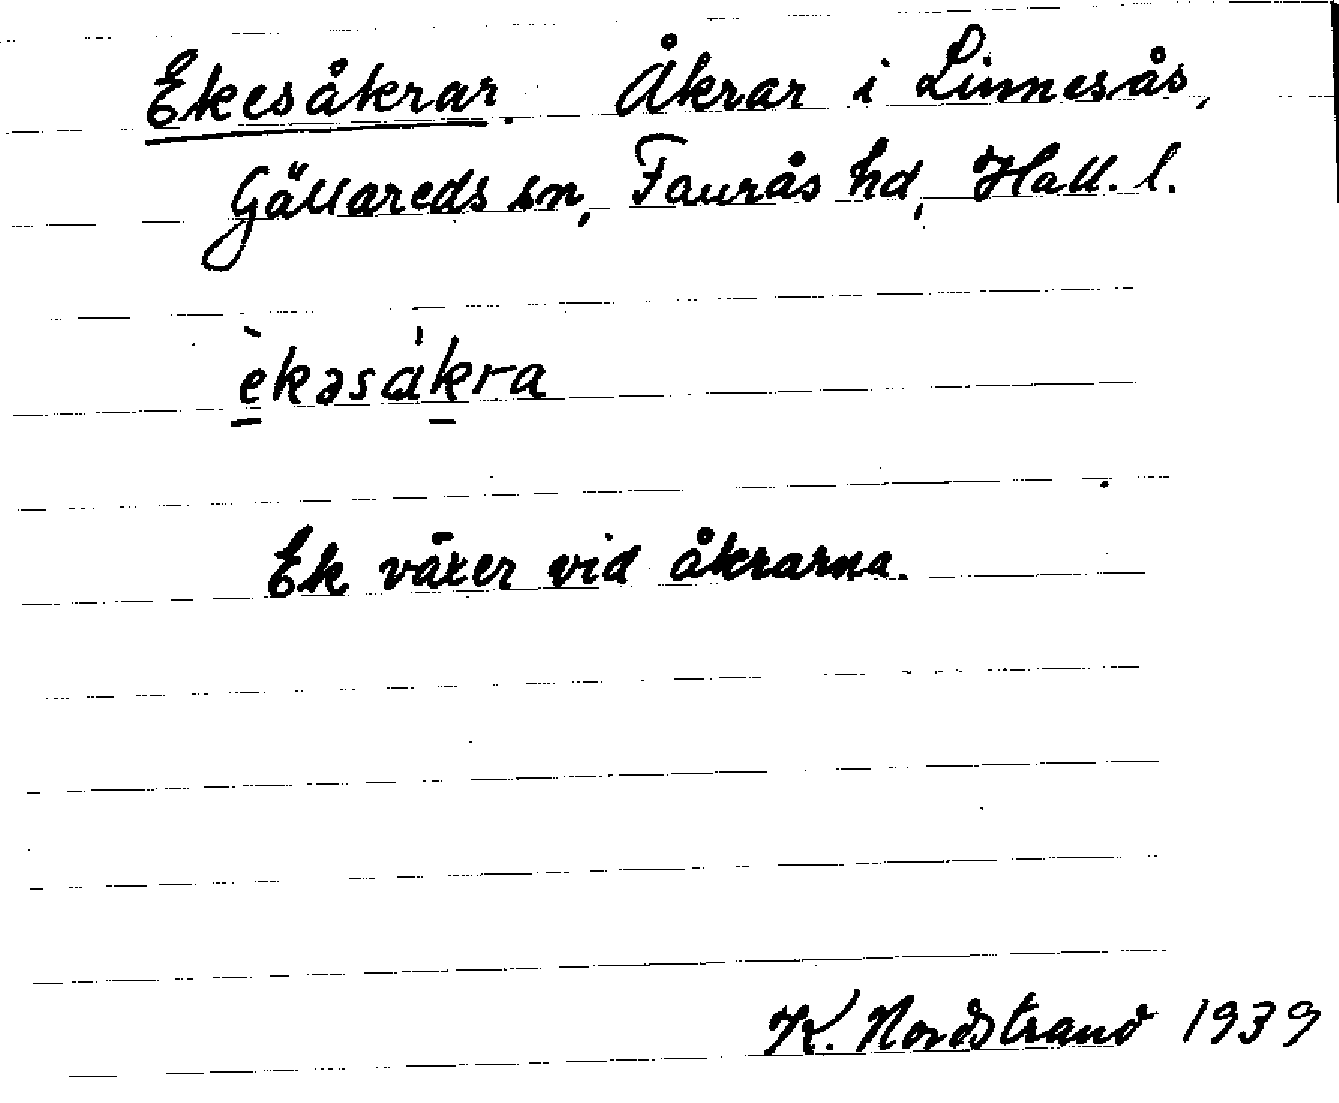 Ekesåkrar. Åkrar i Linnesås,
Gällareds sn, Faurås hd, Hall. l.
èkəsåkra
Ek växer vid åkrarna.
K. Nordstrand 1939